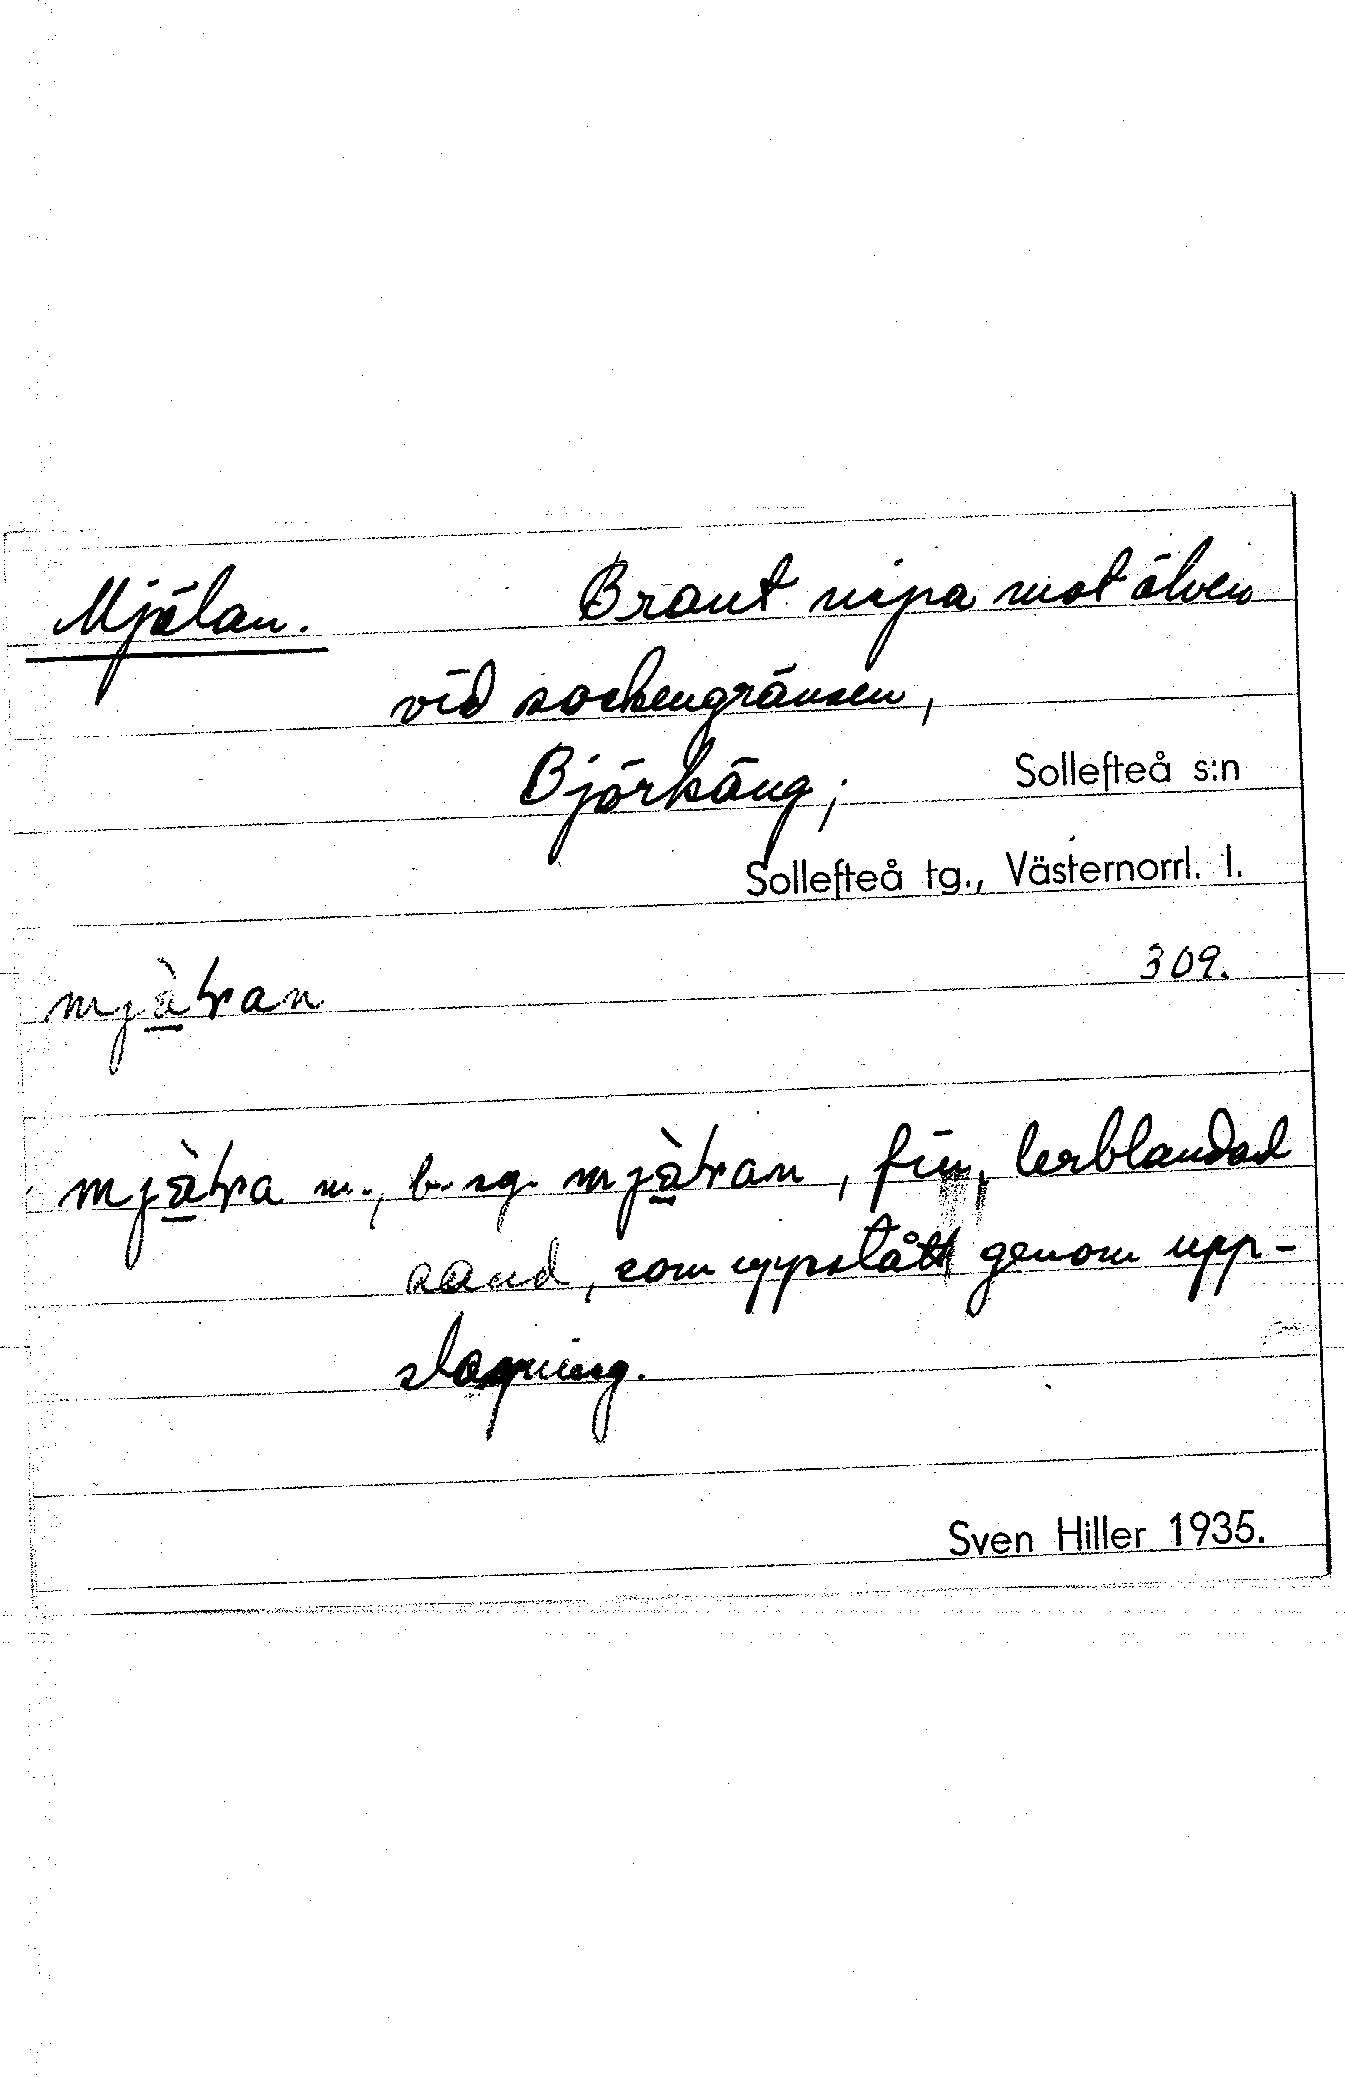 Mjälan. Brant nipa mot älven
vid sockengränsen,
Björkäng; Sollefteå s:n
Sollefteå tg., Västernorrl. l.
309.
mjàɽan
mjàɽa m., b. sg. mjàɽan, fin, lerblandad
sand, som uppstått genom upp-
slagning.
Sven Hiller 1935.